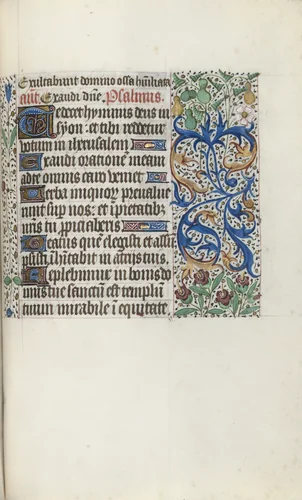 Exultabunt domino ossa humiliata
ant. Exaudi dñe. Psalmus.
Te decet hymnus deus in
syon: et tibi reddetur
votum in iherusalem
Exaudi orationem meam
ad te omnis caro veniet
Verba iniquor prevalue
runt sup nos: et ipietatib;
nris tu ppiciaberis
Beatus quē elegisti et assu
psisti: īhitabit in atriis tuis.
Replebimur in bonis do
mus tue sanctū est templū
tuum mirabile ī equitate